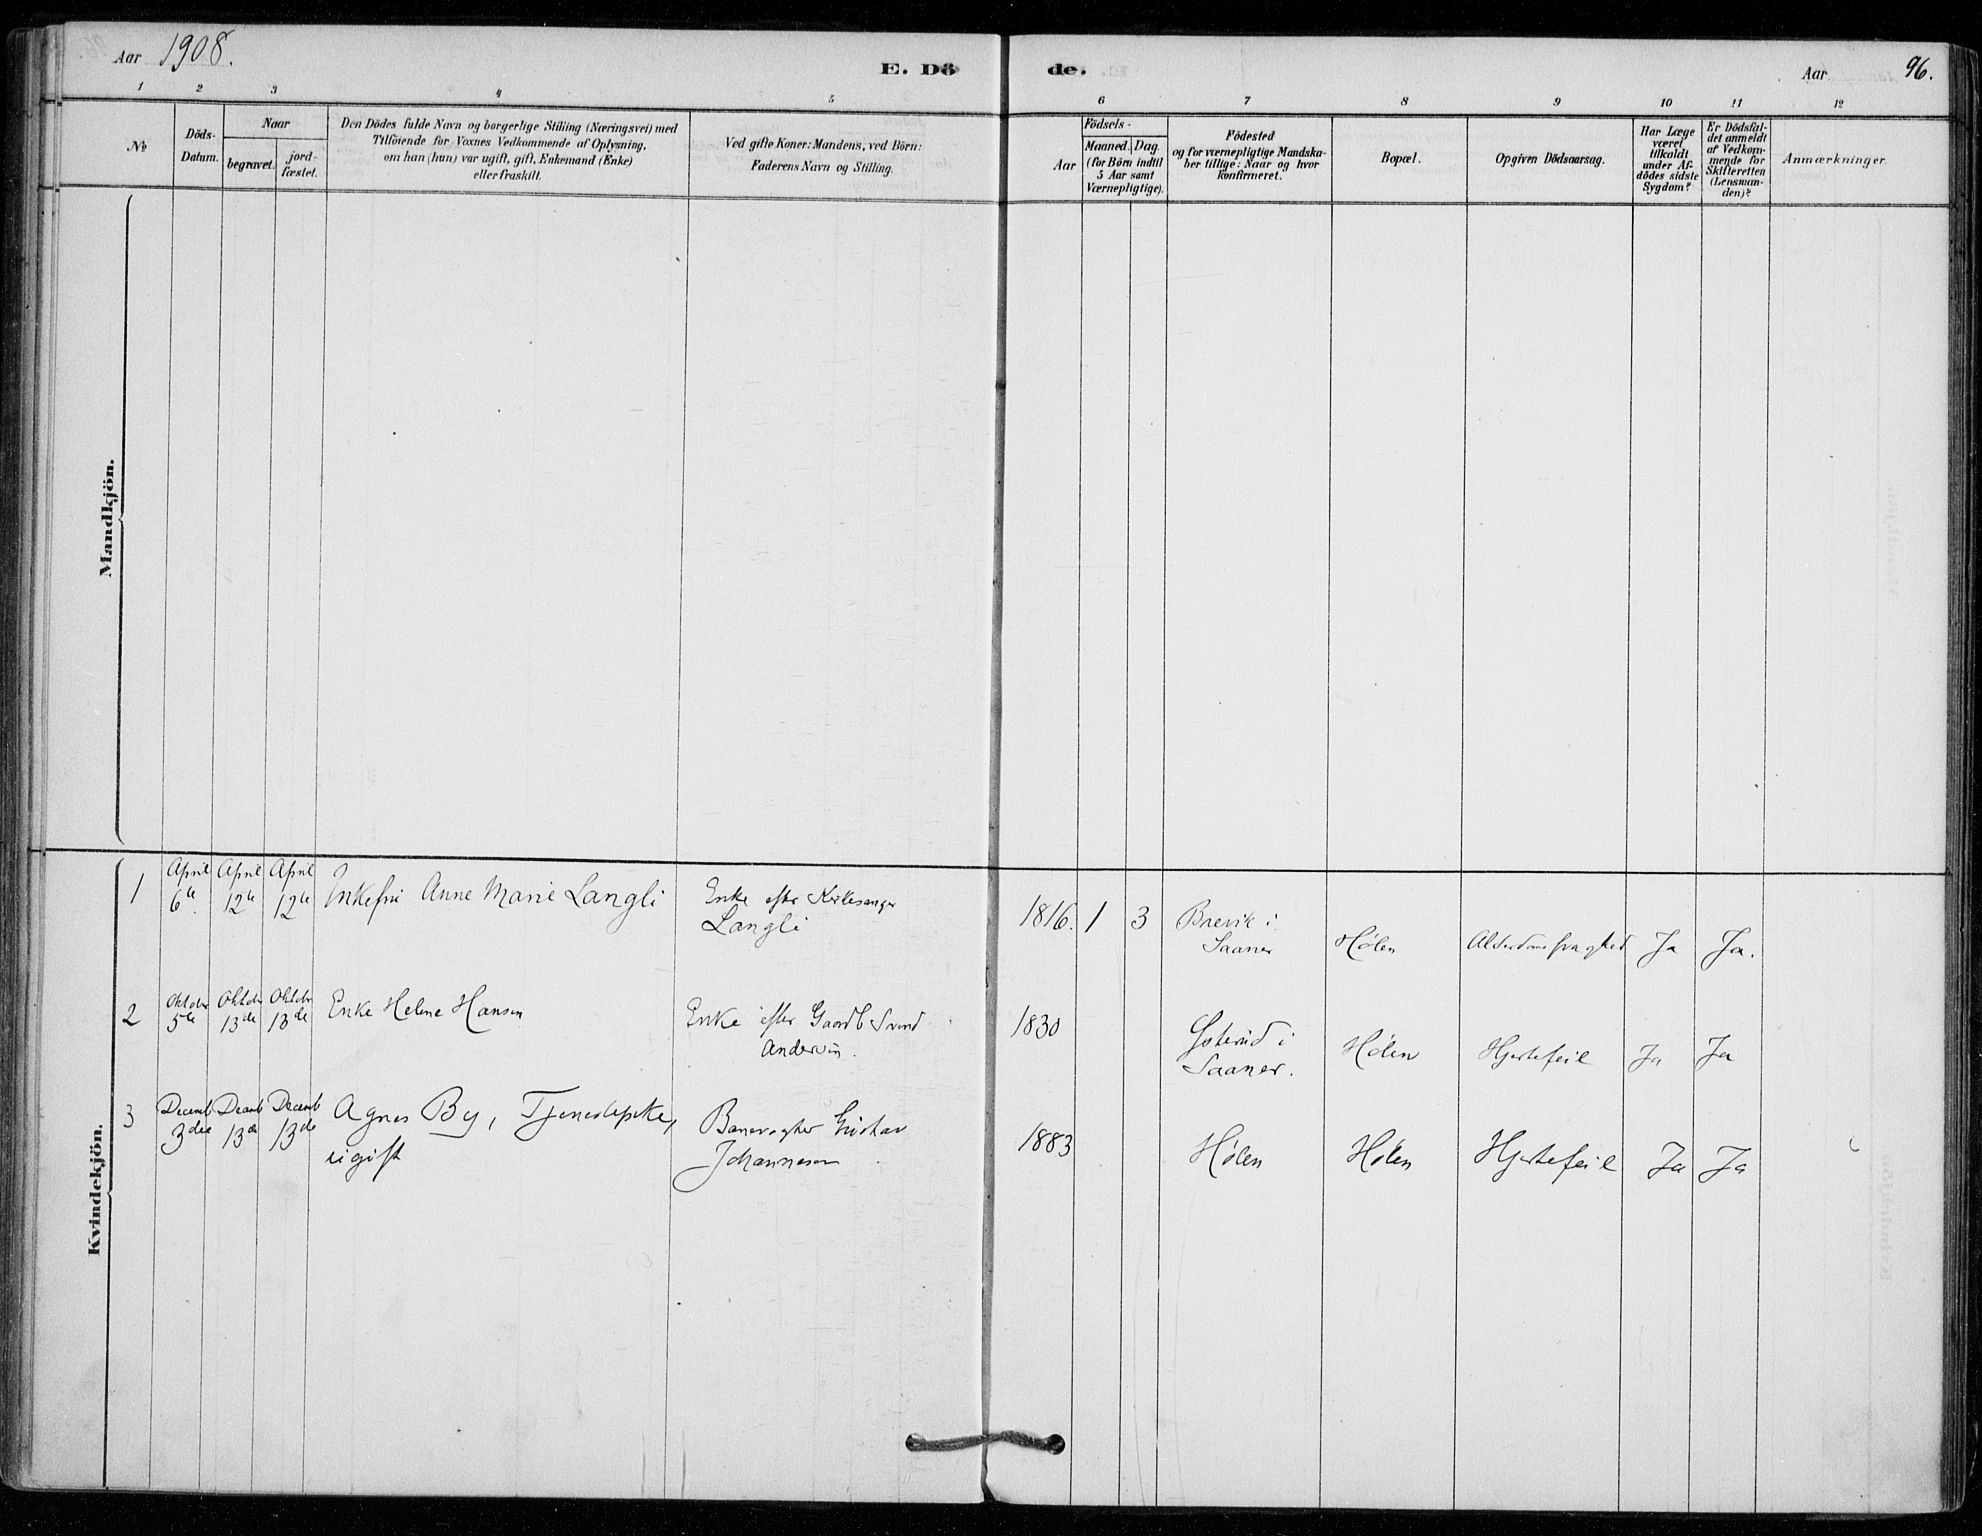 Aar 1908.
E. Dö de.
Aar 96.
1 2 3 4 5 6 7 8 9 10 11 12
No
Döds-
Datum.
Naar
begravet.
jord-
fæstet.
Den Dödes fulde Navn og borgerlige Stilling (Næringsvei) med
Tilföiende for Voxnes Vedkommende af Oplysning,
om han (hun) var ugift, gift, Enkemand (Enke)
eller fraskilt.
Ved gifte Koner: Mandens, ved Börn:
Faderens Navn og Stilling.
Aar
Födsels-
Maaned. Dag.
(for Börn indtil
5 Aar samt
Værnepligtige).
Födested
og for værnepligtige Mandska-
ber tillige: Naar og hvor
konfirmeret.
Bopæl.
Opgiven Dödsaarsag.
Har Læge
været
tilkaldt
under Af-
dödes sidste
Sygdom?
Er Dödsfal-
det anmeldt
af Vedkom-
mende for
Skifteretten
(Lensman-
den)?
Anmærkninger.
Mandkjön.
Kvindekjön.
1 April 6te April 12te April 12te Enkefru Anne Marie Langli Enke efter Kirkesanger
Langli
1816. 1 3 Brevik i
Saaner
Hølen Alderdomssvaghed Ja Ja.
2 Oktober 5te Oktober 13de Oktober 13de Enke Helene Hansen Enke efter Gaardb Svend
Andersen.
1830
Saaner.
Hølen Hjertefeil Ja Ja
3 Decemb 3die Decemb 13de Decemb 13de Agnes By, Tjenestepike,
ugift
Banevogter Gustav
Johannesen
1883 Hølen Hølen Hjertefeil Ja Ja